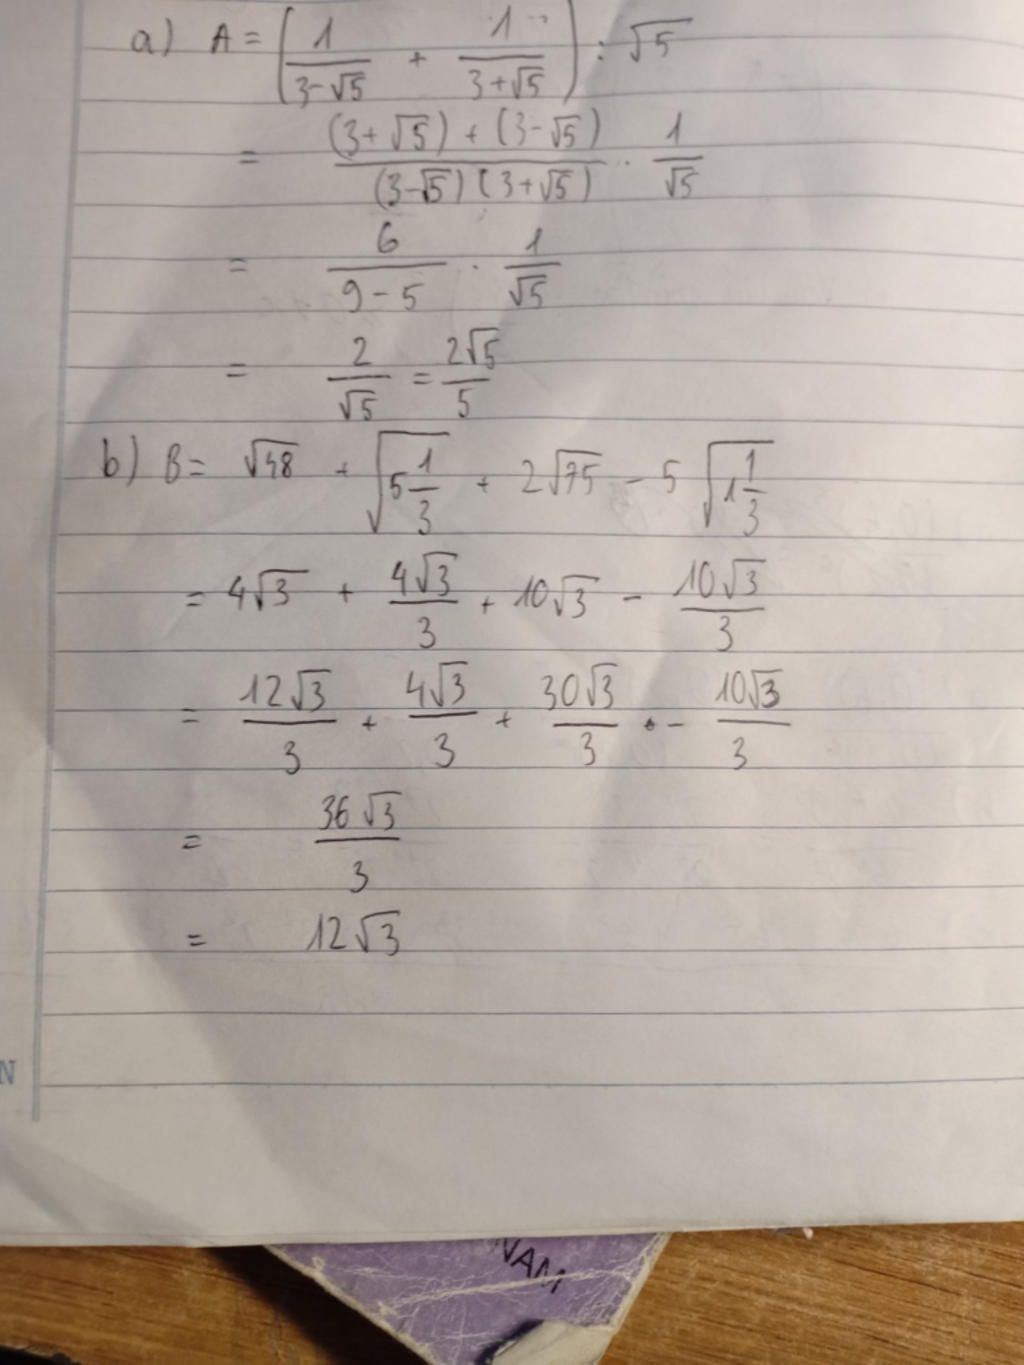 a) A = (1/(3-√5) + 1/(3+√5)) : √5
= ((3+√5) + (3-√5))/((3-√5)(3+√5)) · 1/√5
= 6/(9-5) · 1/√5
= 2/√5 = 2√5/5
b) B = √48 + √(5 1/3) + 2√75 - 5√(1 1/3)
= 4√3 + 4√3/3 + 10√3 - 10√3/3
= 12√3/3 + 4√3/3 + 30√3/3 - 10√3/3
= 36√3/3
= 12√3
N
NAM